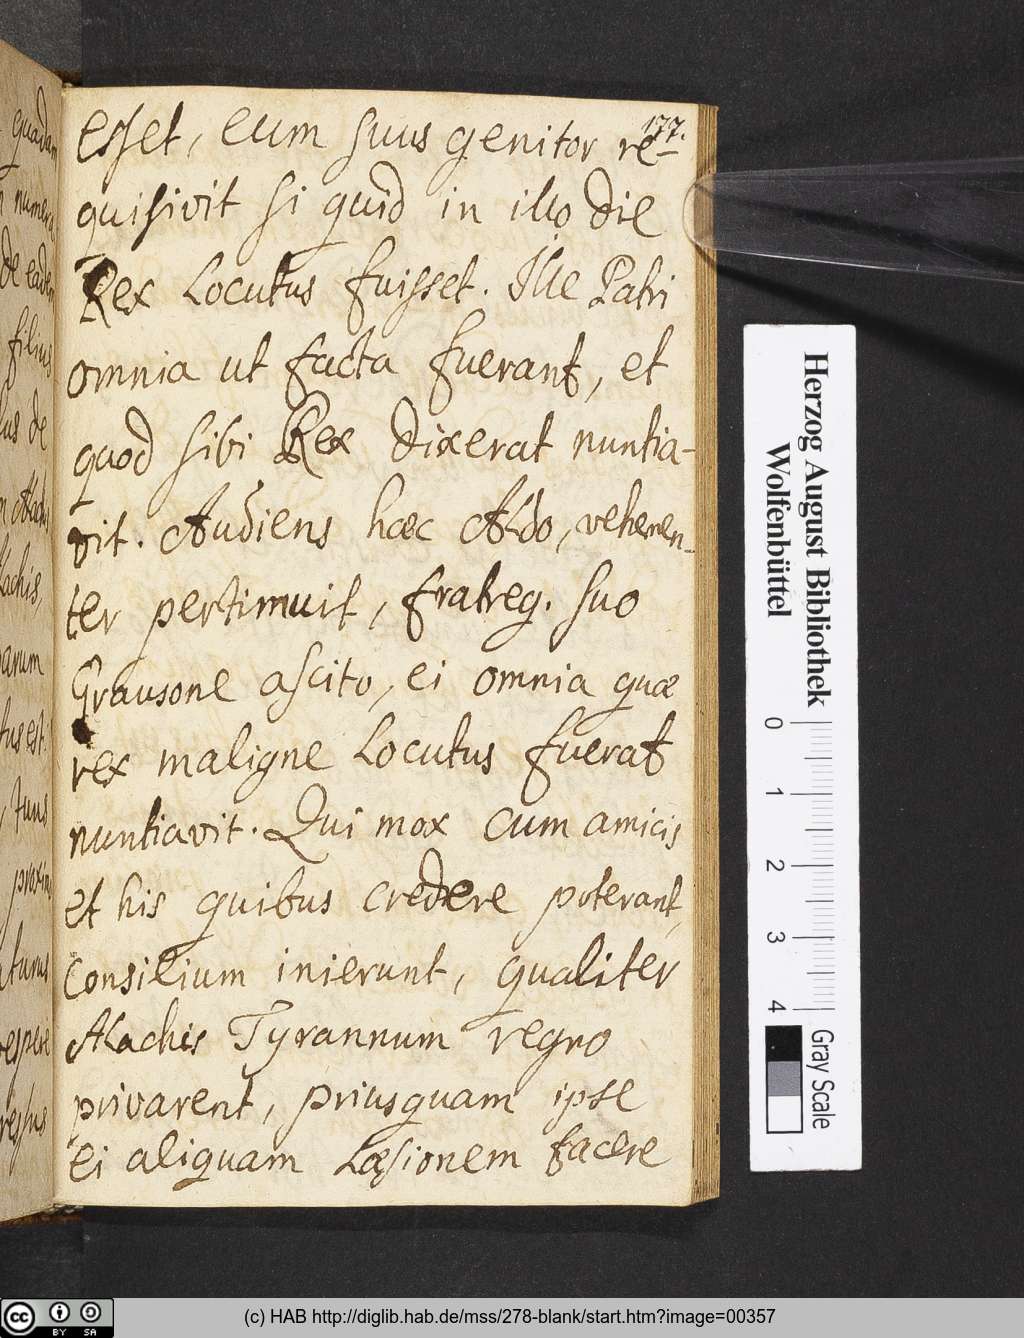 177.
esset, eum suus genitor re-
quisivit si quid in illo die
Rex Locutus fuisset. Ille Patri
omnia ut facta fuerant, et
quod sibi Rex dixerat nuntia-
vit. Audiens hæc Aldo, vehemen-
ter pertimuit, fratreq. suo
Grausone ascito, ei omnia quæ
rex maligne Locutus fuerat
nuntiavit. Qui mox cum amicis
et his quibus credere poterant,
Consilium inierunt, qualiter
Alachis Tyrannum regno
privarent, priusquam ipse
ei aliquam Læsionem facere
quadam
numero
de eadem
filius
de
Alachis,
tus est.
tuus
vespere
Herzog August Bibliothek
Wolfenbüttel
0 1 2 3 4
Gray Scale
cc BY SA
(c) HAB http://diglib.hab.de/mss/278-blank/start.htm?image=00357